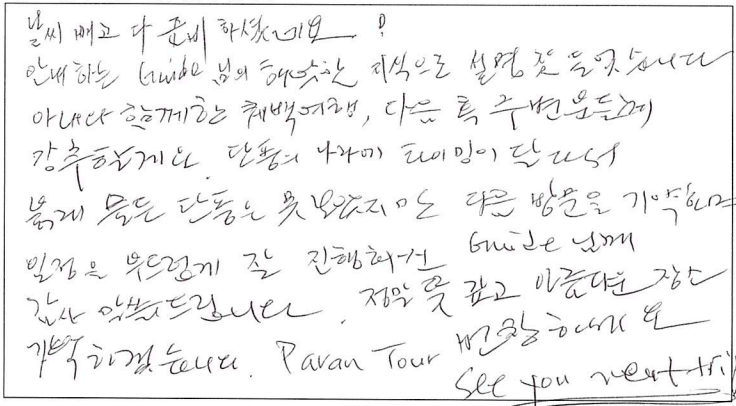 날씨 빼고 다 준비하셨네요 !
안내하는 Guide 님의 해박한 지식으로 설명 잘 들었습니다
아내와 함께한 퀘백여행, 다음 특 주변분들께
강추할게요. 단풍의 나라에 타이밍이 달라서
붉게 물든 단풍은 못 보았지만 다음 방문을 기약하며
일정을 부드럽게 잘 진행하여서 Guide 님께
감사 말씀드립니다. 정말 뜻 깊고 아름다운 장소
기억하겠습니다. Paran Tour 번창하세요
See you next trip